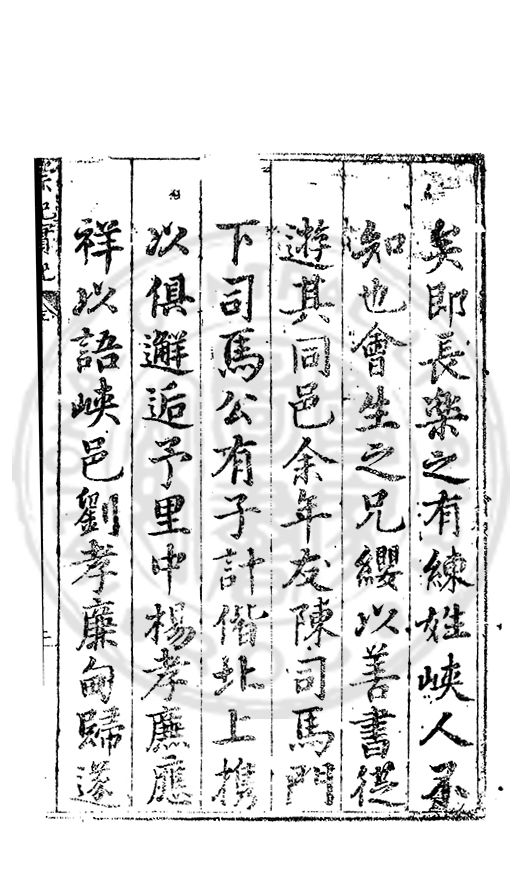 矣即長楽之有練姓峽人不
知也會生之兄纓以善書從
遊其同邑余年友陳司馬門
下司馬公有子計偕北上携
以俱邂逅予里中楊孝廉應
祥以語峽邑劉孝廉旬歸遂